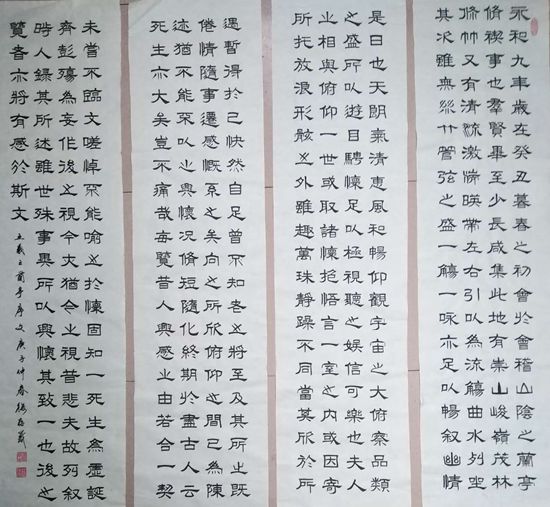 永和九年歲在癸丑暮春之初會於會稽山陰之蘭亭
脩禊事也羣賢畢至少長咸集此地有崇山峻嶺茂林
脩竹又有清流激湍暎帶左右引以為流觴曲水列坐
其次雖無絲竹管弦之盛一觴一詠亦足以暢叙幽情
是日也天朗氣清惠風和暢仰觀宇宙之大俯察品類
之盛所以遊目騁懷足以極視聽之娛信可樂也夫人
之相與俯仰一世或取諸懷抱悟言一室之內或因寄
所托放浪形骸之外雖趣萬殊靜躁不同當其欣於所
遇暫得於己快然自足曾不知老之將至及其所之既
倦情隨事遷感慨系之矣向之所欣俯仰之間已為陳
迹猶不能不以之興懷況脩短隨化終期於盡古人云
死生亦大矣豈不痛哉每覽昔人興感之由若合一契
未嘗不臨文嗟悼不能喻之於懷固知一死生為虛誕
齊彭殤為妄作後之視今亦猶今之視昔悲夫故列叙
時人錄其所述雖世殊事異所以興懷其致一也後之
覽者亦將有感於斯文 王羲之蘭亭序文庚子仲春